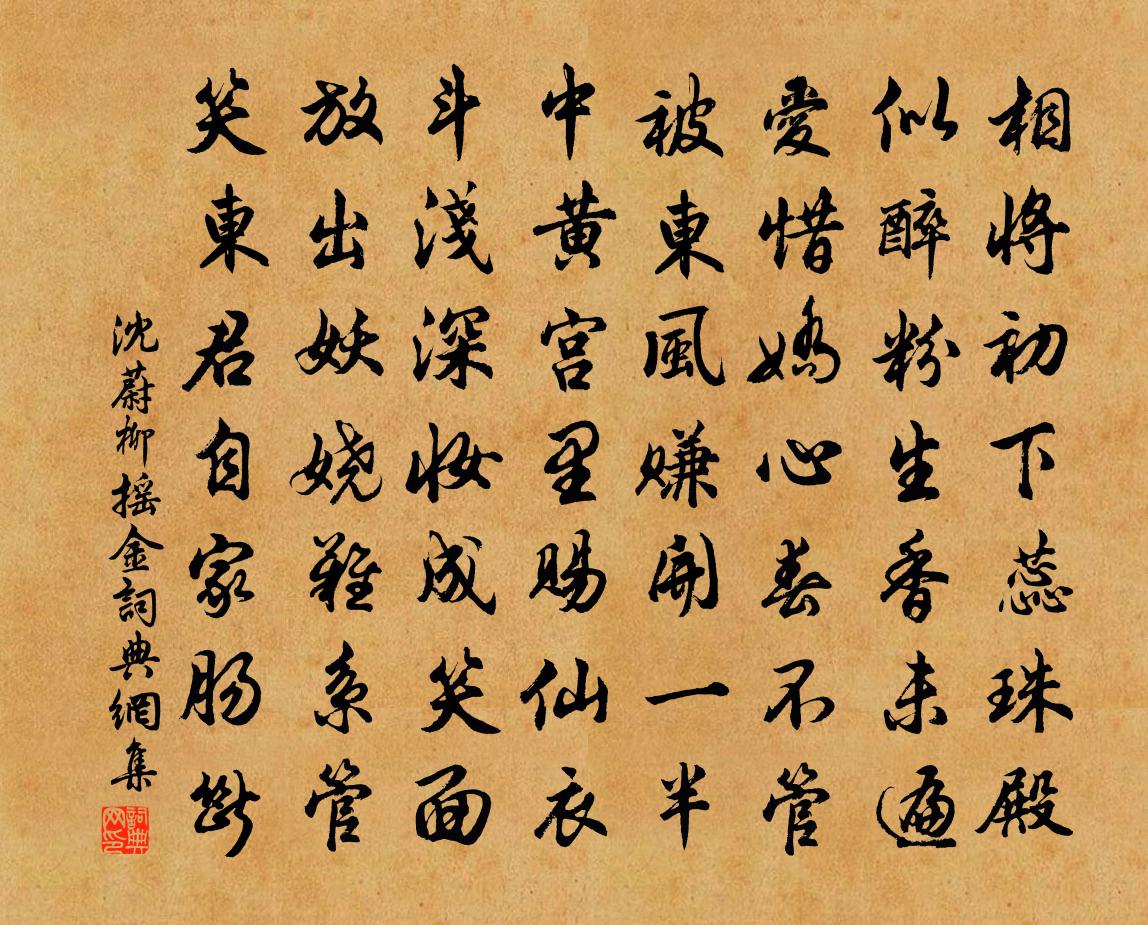 相將初下蕊珠殿
似醉粉生香未遍
愛惜嬌心春不管
被東風賺開一半
中黄宫里賜仙衣
斗淺深妝成笑面
放出妖嬈難系管
笑東君自家腸斷
沈蔚柳摇金詞典網集
詞典网印